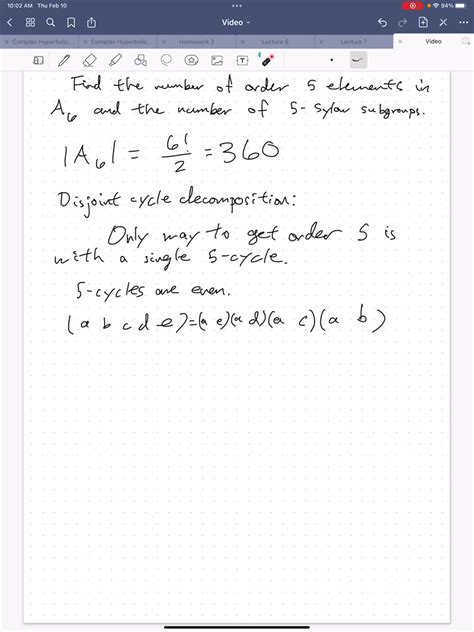 10:02 AM Thu Feb 10
94%
Video
Complex Hyperbolic...
Complex Hyperbolic...
Homework 2
Lecture 6
Lecture 7
Video
Find the number of order 5 elements in
A₆ and the number of 5-Sylow subgroups.
|A₆| = 6!/2 = 360
Disjoint cycle decomposition:
Only way to get order 5 is
with a single 5-cycle.
5-cycles are even.
(a b c d e)=(a e)(a d)(a c)(a b)